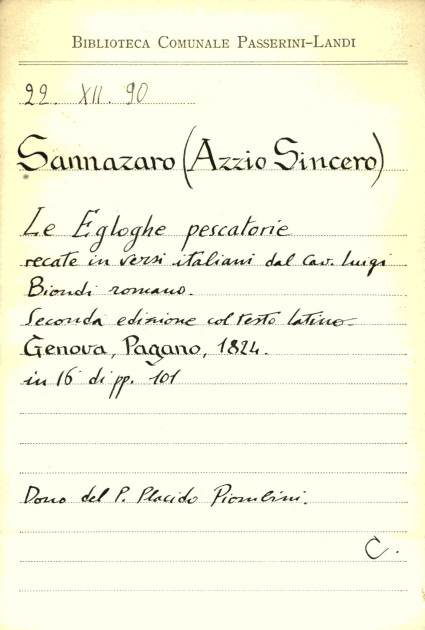 BIBLIOTECA COMUNALE PASSERINI-LANDI
22. XII. 90
Sannazaro (Azzio Sincero)
Le Egloghe pescatorie
recate in versi italiani dal Cav. Luigi
Biondi romano.
Seconda edizione col testo latino.
Genova, Pagano, 1824.
in 16 di pp. 101
Dono del P. Placido Piombini.
C.